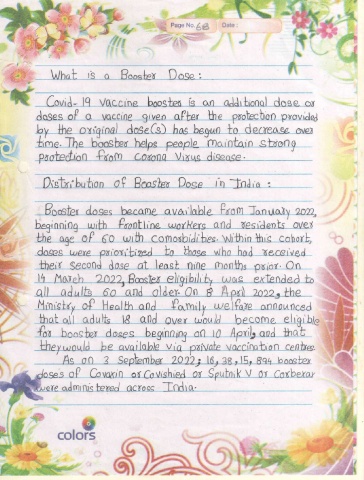 Page No. 68 Date :
What is a Booster Dose :
Covid-19 vaccine booster is an additional dose or
doses of a vaccine given after the protection provided
by the original dose(s) has begun to decrease over
time. The booster helps people maintain strong
protection from corona Virus disease.
Distribution of Booster Dose in India :
Booster doses became available from January 2022,
beginning with frontline workers and residents over
the age of 60 with comorbidities. Within this cohort,
doses were prioritized to those who had received
their second dose at least nine months prior. On
14 March 2022, Booster eligibility was extended to
all adults 60 and older. On 8 April 2022, the
Ministry of Health and Family welfare announced
that all adults 18 and over would become eligible
for booster doses beginning on 10 April, and that
they would be available via private vaccination centres.
As on 3 September 2022, 16,38,15,894 booster
doses of Covaxin or Covishied or Sputnik V or Corbevax
were administered across India.
colors